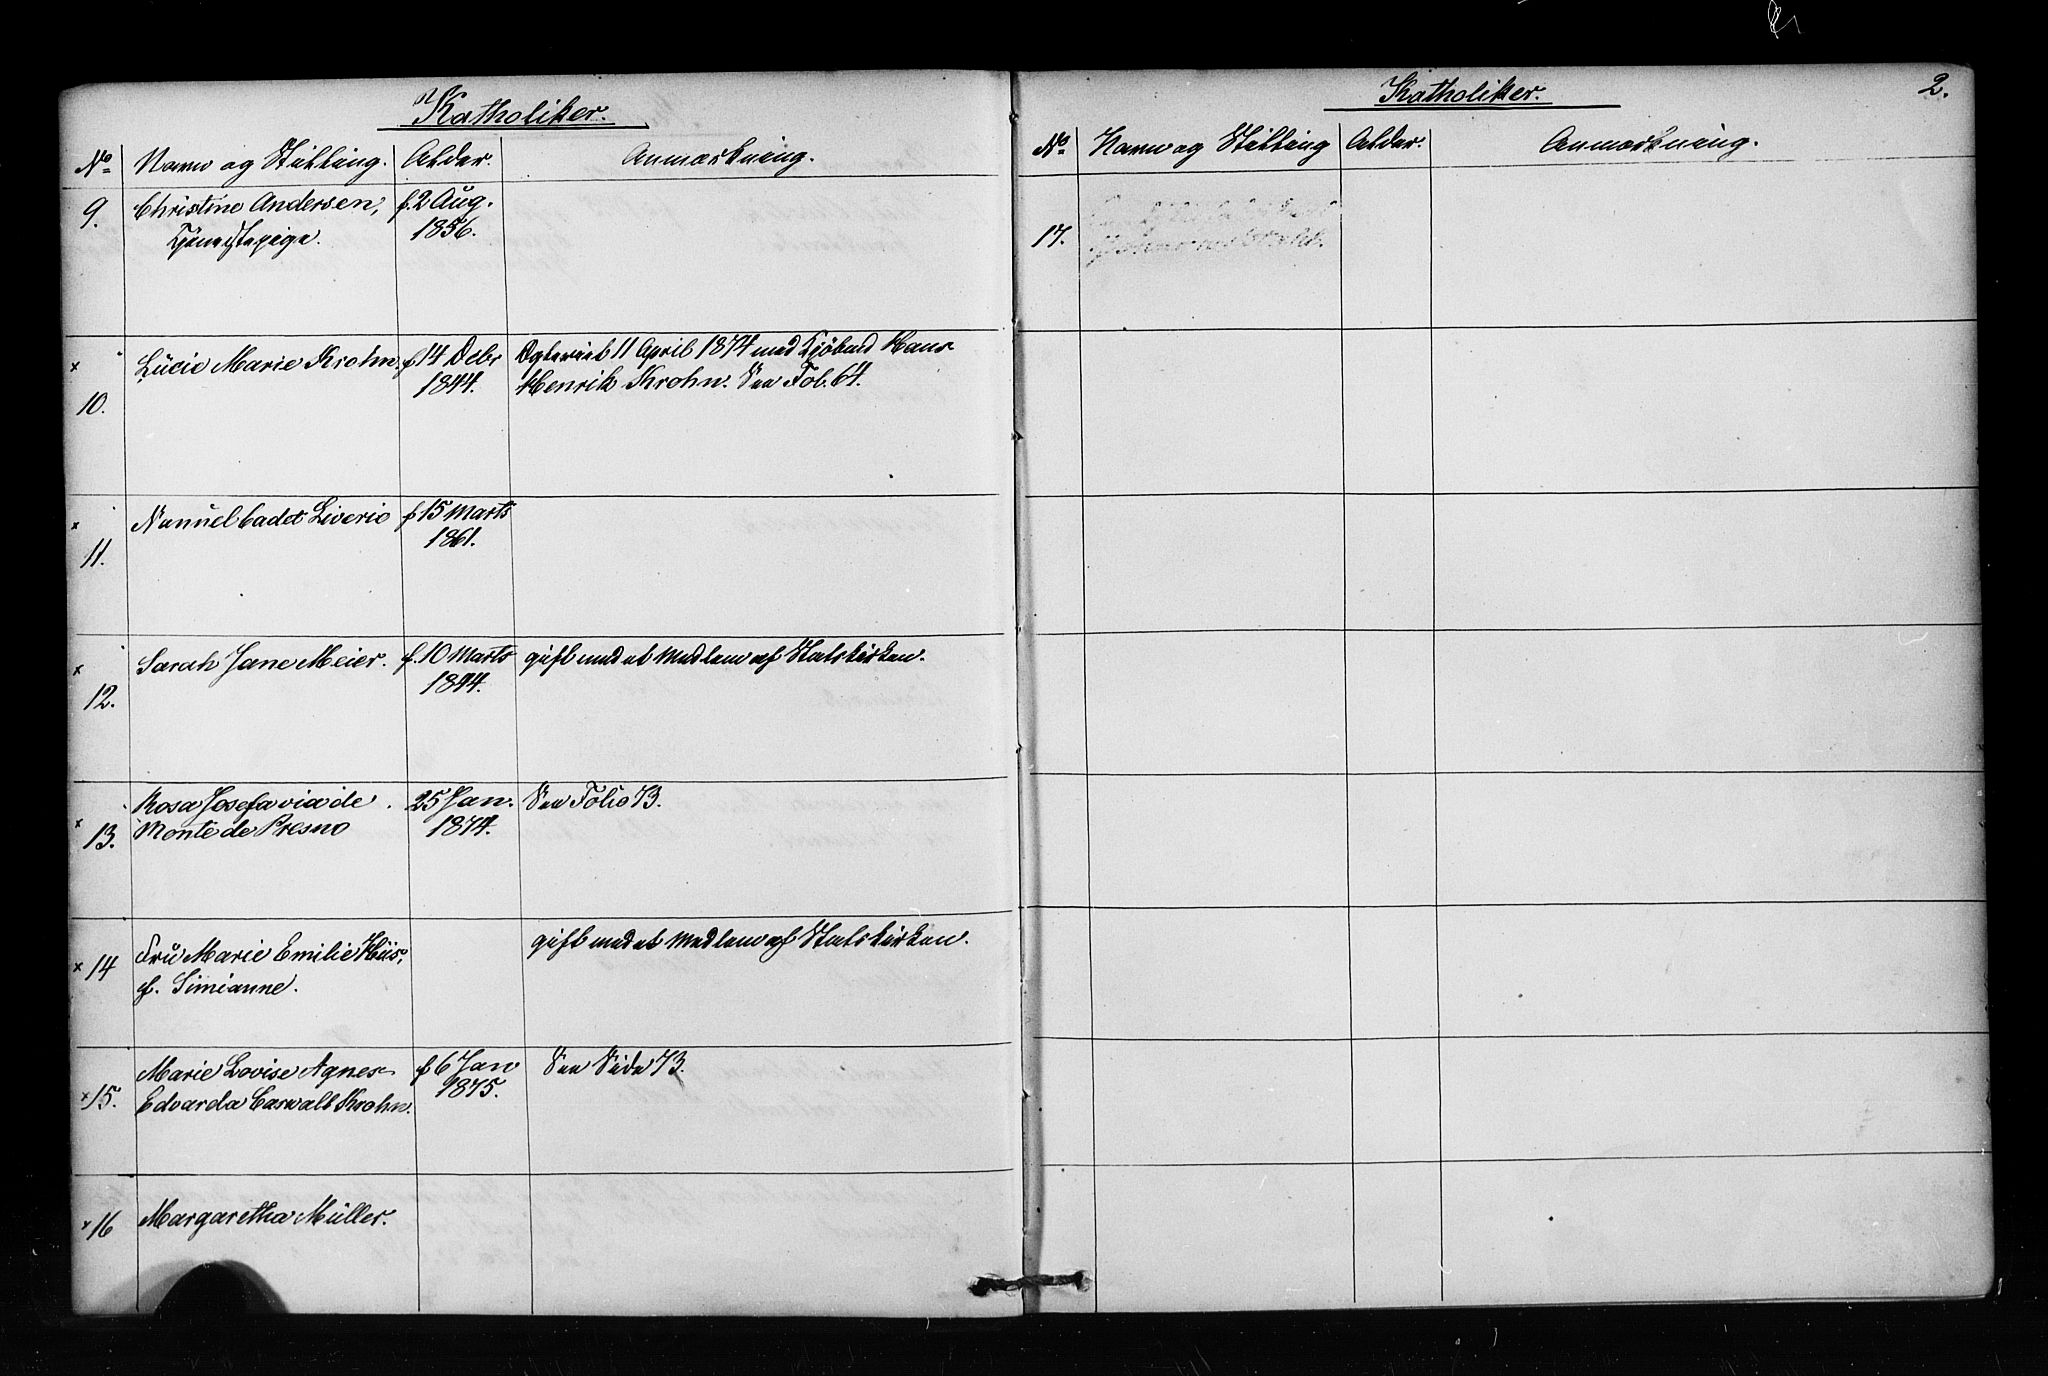 Katholiker.
No Navn og Stilling. Alder. Anmærkning.
9. Christine Andersen, f. 2 Aug.
Tjenestepige. 1856.
x 10. Lucie Marie Krohn. f 14 Debr Egteviet 11 April 1874 med Kjöbmd Hans
1844. Henrik Krohn. See Fol. 64.
x 11. Manuel Cadet Liverio f 15 Marts
1861.
x 12. Sarah Jane Meier. f. 10 Marts gift med et Medlem af Statskirken.
1844.
x 13. Rosa Josefavia de 25 Jan. See Folio 73.
Monte de Presno 1874.
x 14 Fru Marie Emilie Hüs, gift med et Medlem af Statskirken.
f. Simianne.
x 15. Marie Lovise Agnes f 6 Jan See Side 73.
Edvarda Carvalt Krohn. 1875.
x 16 Margaretha Müller.
Katholiker. 2.
No Navn og Stilling Alder. Anmærkning.
17.